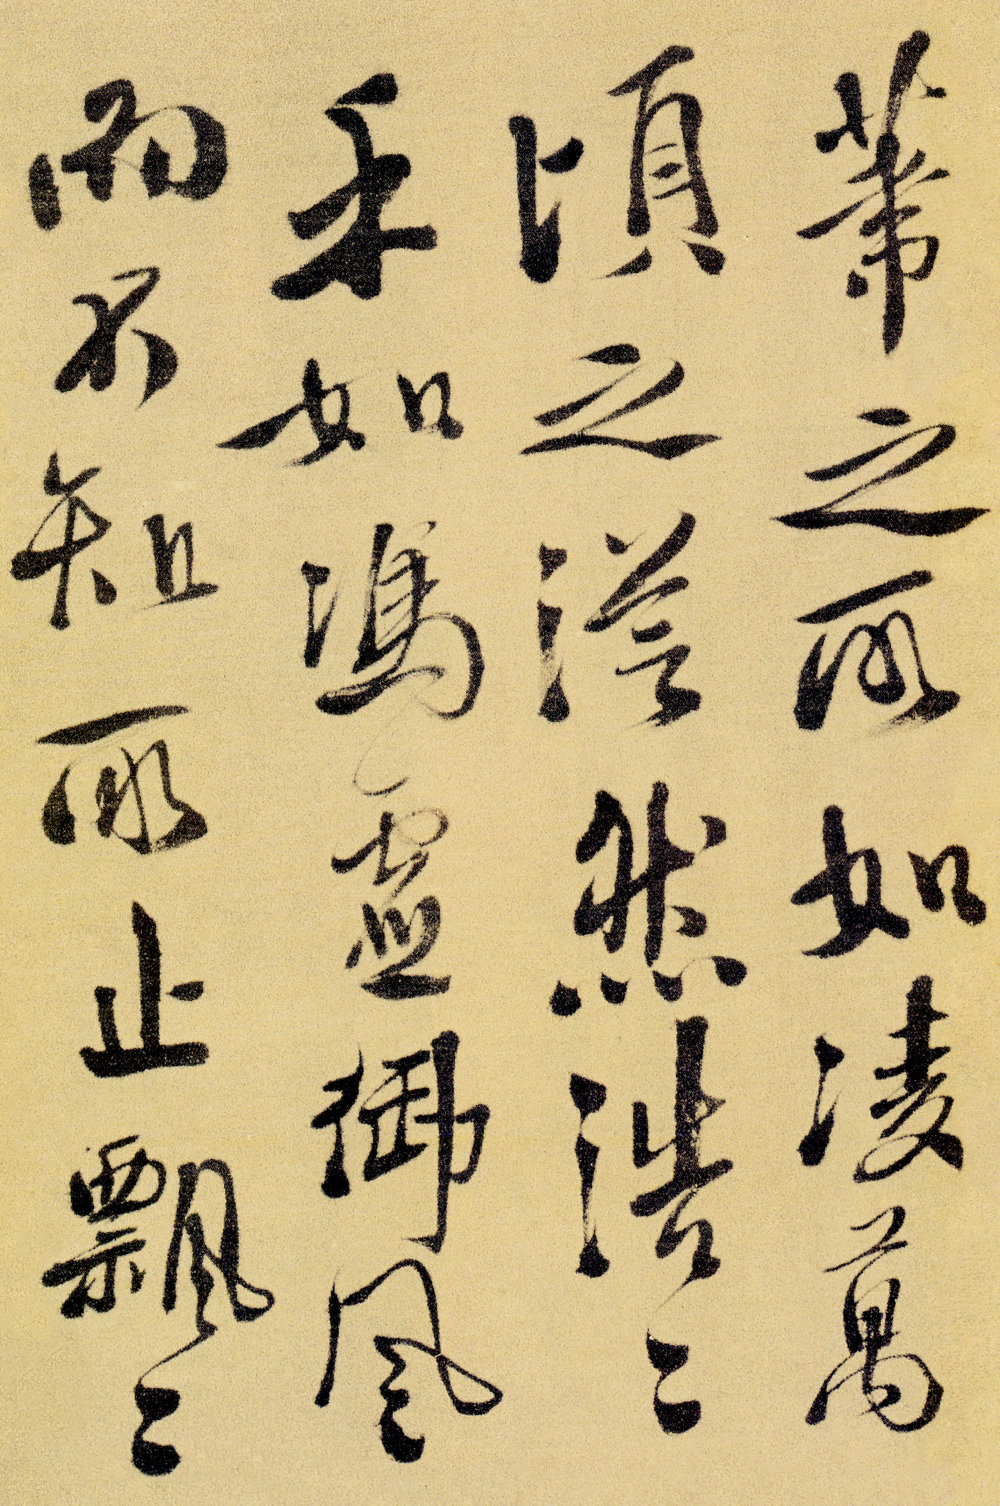 葦之所如凌萬
頃之茫然浩〻
乎如馮虛御風
而不知所止飄〻